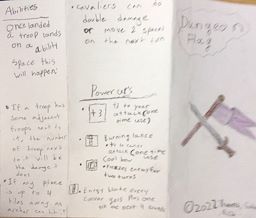 Abilities
Once landed
a troop lands
on a ability
space this
will happen:
• If a troop has
some adjacent
troops next to
it, the number
of troops next
to it will be
the damage it
does.
• If any piece
is up to
tiles away, an
archer can hit it
• Cavaliers can do
double damage
or move 2 spaces
on the next turn
Power up's
+3
+3 to your
attack (one
time use)
Burning lance
attack (one time
use)
Cool bow
• Freezes enemy for
two turns
every
corner you plus one
Dungeon
Flag
©2022 Thomas